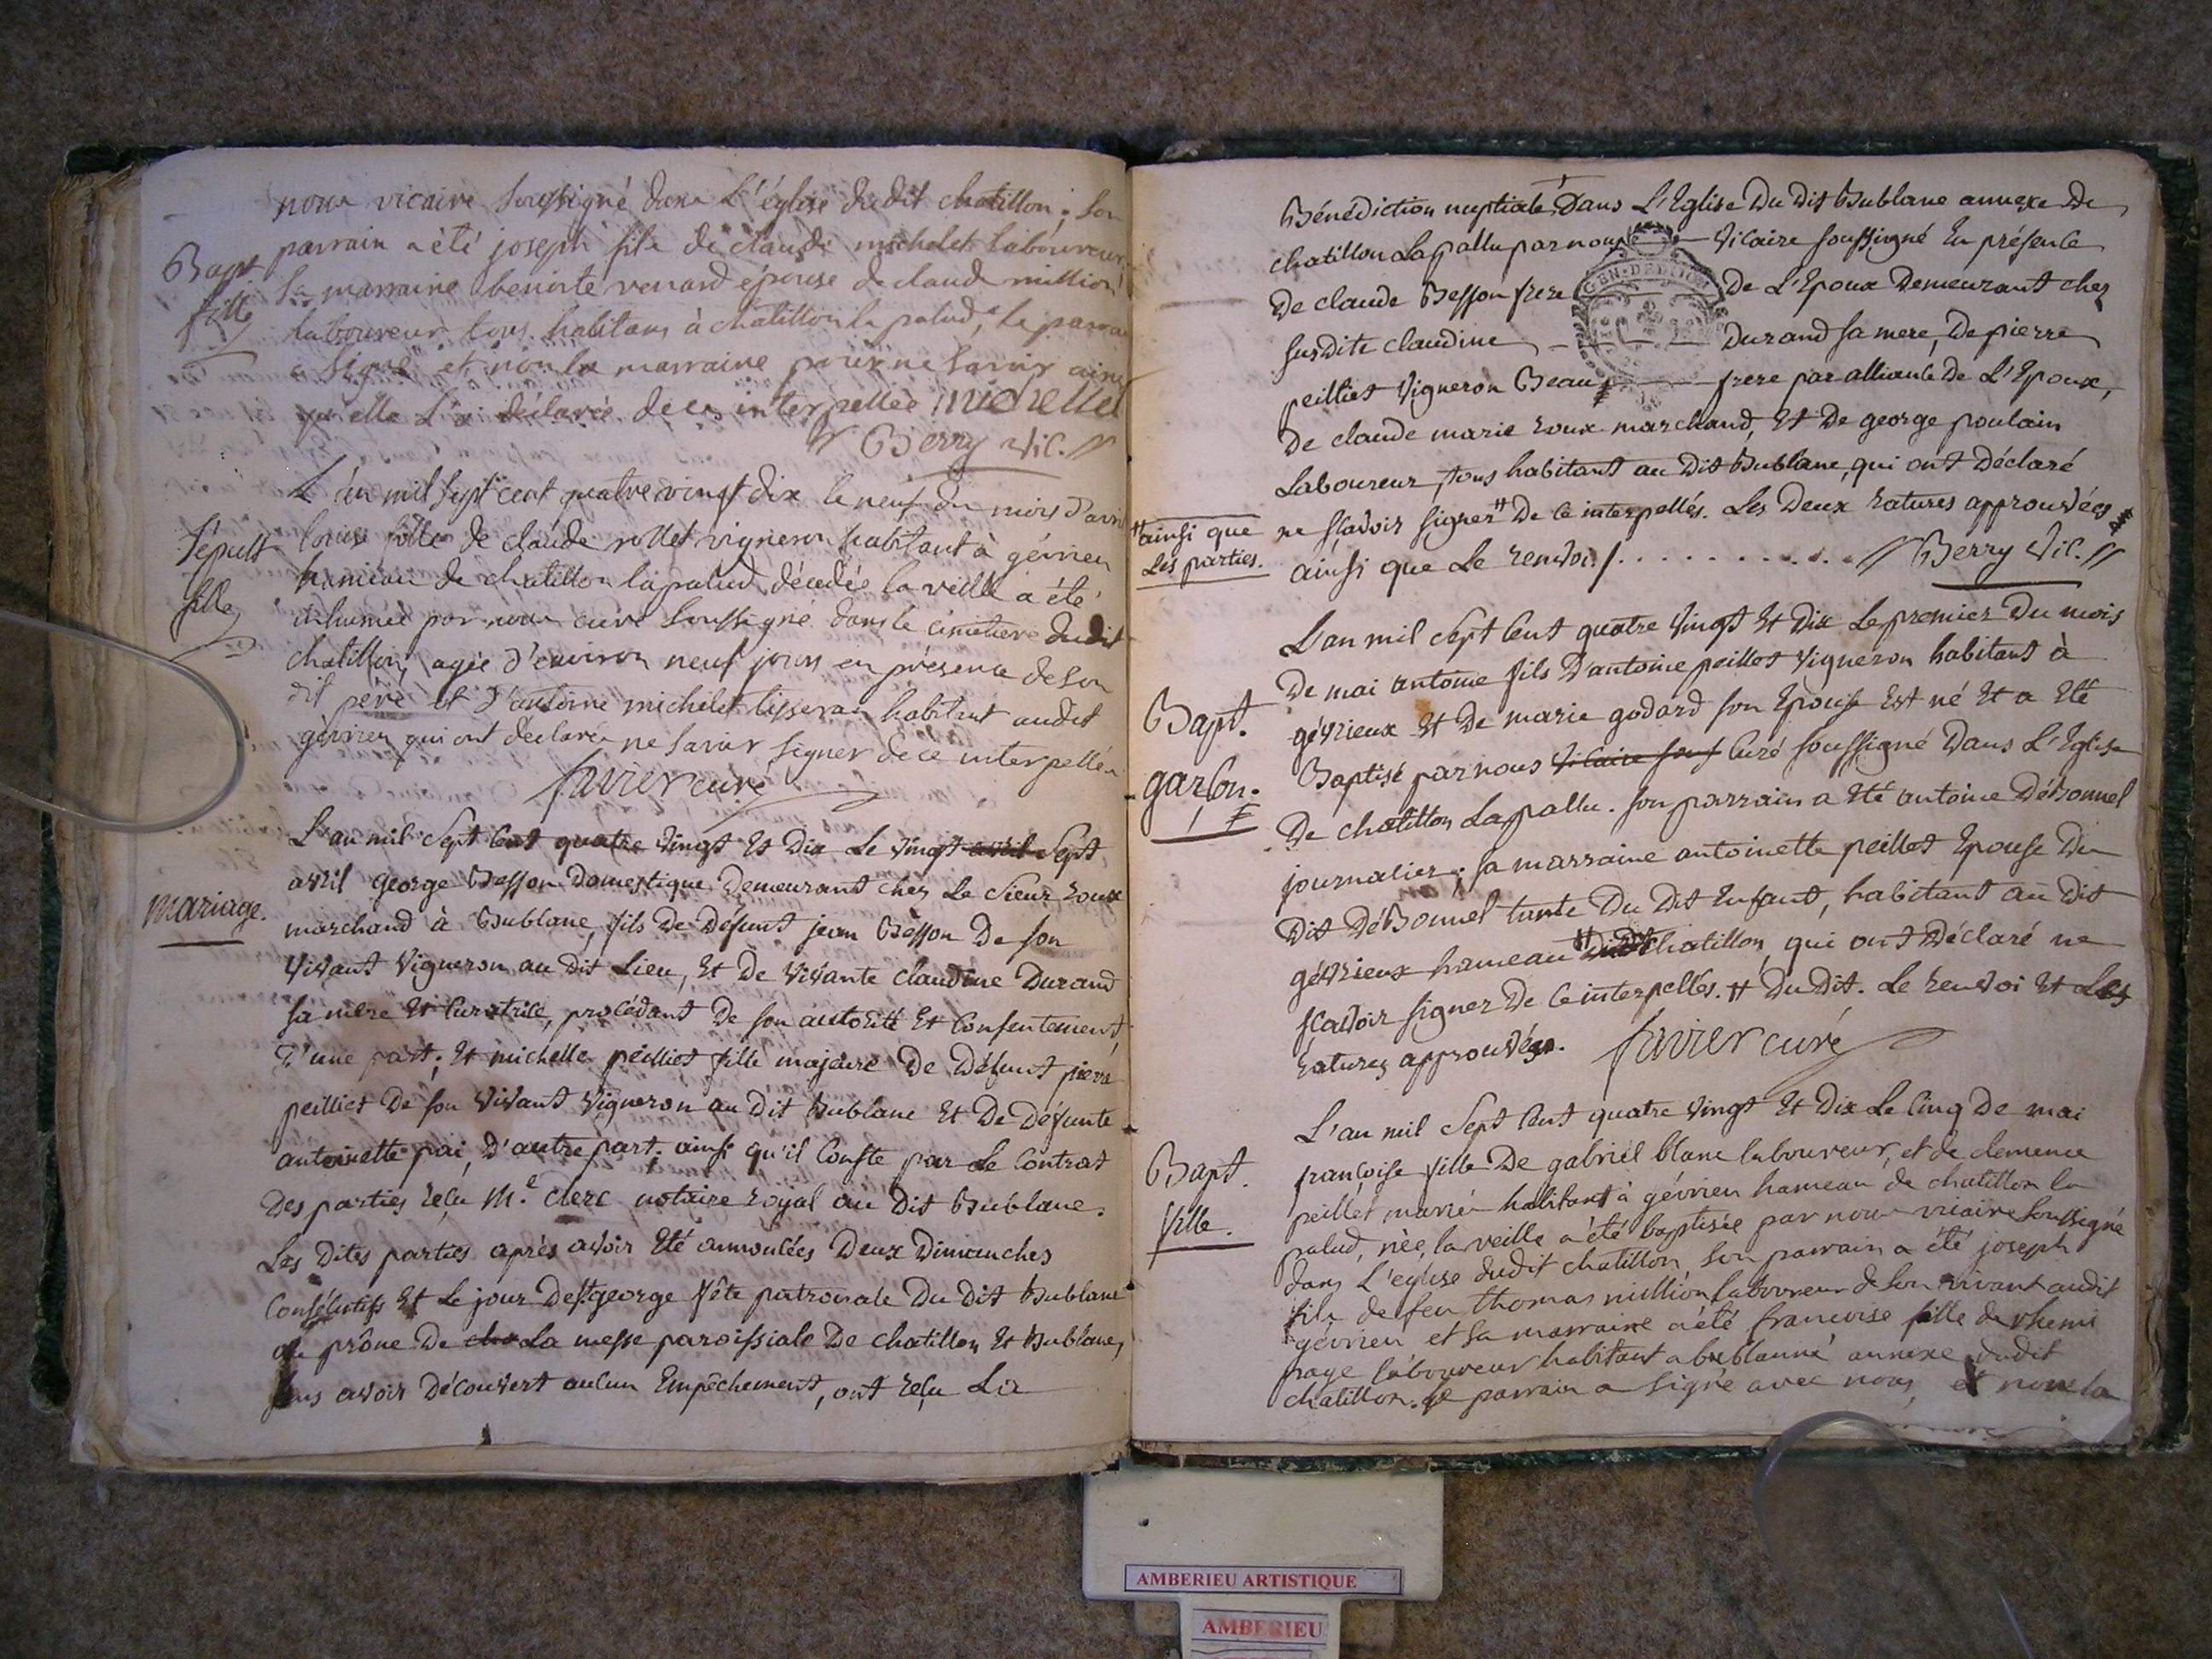 nous vicaire soussigné dans L'église dudit chatillon; son
parrain a été joseph fils de claude michelet laboureur,
Bapt.
fille
sa marraine benoite renard épouse de claude million
laboureur tous habitans à chatillon la palud, le parrain
a signé et non la marraine pour ne savoir ainsi
qu'elle L'a déclaré de ce interpellée michellet
// Berry vic. //
L'an mil sept cent quatre vingt dix le neuf du mois d'avril
Sépult
fille
louise fille de claude rollet vigneron habitant à gévrieu
hameau de chatillon la palud décédée la veille a été
inhumée par nous curé soussigné dans le cimetiere dudit
chatillon, agée d'environ neuf jours en présence de son
dit père et d'antoine michelet tisseran habitant audit
gévrieu qui ont déclarés ne savoir signer de ce interpellés
favier curé
L'an mil Sept Cent quatre Vingt Et Dix Le Vingt avril Sept
avril george Besson Domestique Demeurant chez Le Sieur roux
mariage.
marchand à Bublane, fils De Défunt jean Besson De son
Vivant Vigneron au Dit Lieu, Et De Vivante Claudine Durand
sa mère Et Curatrice, procédant De son autorité Et Consentement,
D'une part; Et michelle peilliet fille majeure De Défunt pierre
peilliet De son Vivant Vigneron au Dit Bublane Et De Défunte
antoinette pai, D'autre part; ainsi qu'il Conste par Le Contrat
Des parties reçu M.e clerc notaire royal au Dit Bublane.
Les Dites parties après avoir Eté annoncées Deux Dimanches
Consécutifs Et Le jour De St. george fête patronale Du Dit Bublane
au prône De cha La messe paroissiale De chatillon Et Bublane,
sans avoir Découvert aucun Empêchement, ont reçu La
Bénédiction nuptiale, Dans L'Eglise Du Dit Bublane annexe De
chatillon Lapallu par nous Vicaire soussigné En présence
GEN. DE DIJON
De claude Besson frere De L'Epoux Demeurant chez
susdite claudine Durand sa mere, De pierre
peilliet Vigneron Beau frere par alliance De L'Epoux,
De claude marie roux marchand, Et De george poulain
Laboureur, tous habitant au Dit Bublane, qui ont Déclaré
ne sçavoir signer # De ce interpellés. Les Deux ratures approuvées
# ainsi que
Les parties.
ainsi que Le renvoi. /. . . . . . . . . . . // Berry Vic. //
L'an mil Sept Cent quatre Vingt Et Dix Le premier Du mois
De mai antoine fils D'antoine peillet Vigneron habitant à
Bapt.
garçon.
gévrieux Et De marie godard son Epouse Est né Et a Eté
Baptisé par nous Vicaire sous Curé soussigné Dans L'Eglise
De chatillon Lapallu. son parrain a Eté antoine DéBonnel
journalier; sa marraine antoinette peillet Epouse Du
Dit DéBonnel tante Du Dit Enfant, habitant au Dit
gévrieux hameau # chatillon, qui ont Déclaré ne
sçavoir signer De ce interpellés. # Du Dit. Le renvoi Et Les
ratures approuvés. favier curé
L'an mil Sept Cent quatre Vingt Et Dix Le Cinq De mai
Bapt.
fille.
françoise fille De gabriel blanc laboureur, et de clemence
peillet mariés habitant à gévrieu hameau de chatillon la
palud, née la veille a été baptisée par nous vicaire soussigné
dans L'eglise dudit chatillon, son parrain a été joseph
fils de feu thomas million laboureur de son vivant audit
gévrieu et sa marraine a été francoise fille de rhemi
page laboureur habitant a bublanne annexe dudit
chatillon. le parrain a signé avec nous, et non la
AMBERIEU ARTISTIQUE
AMBERIEU